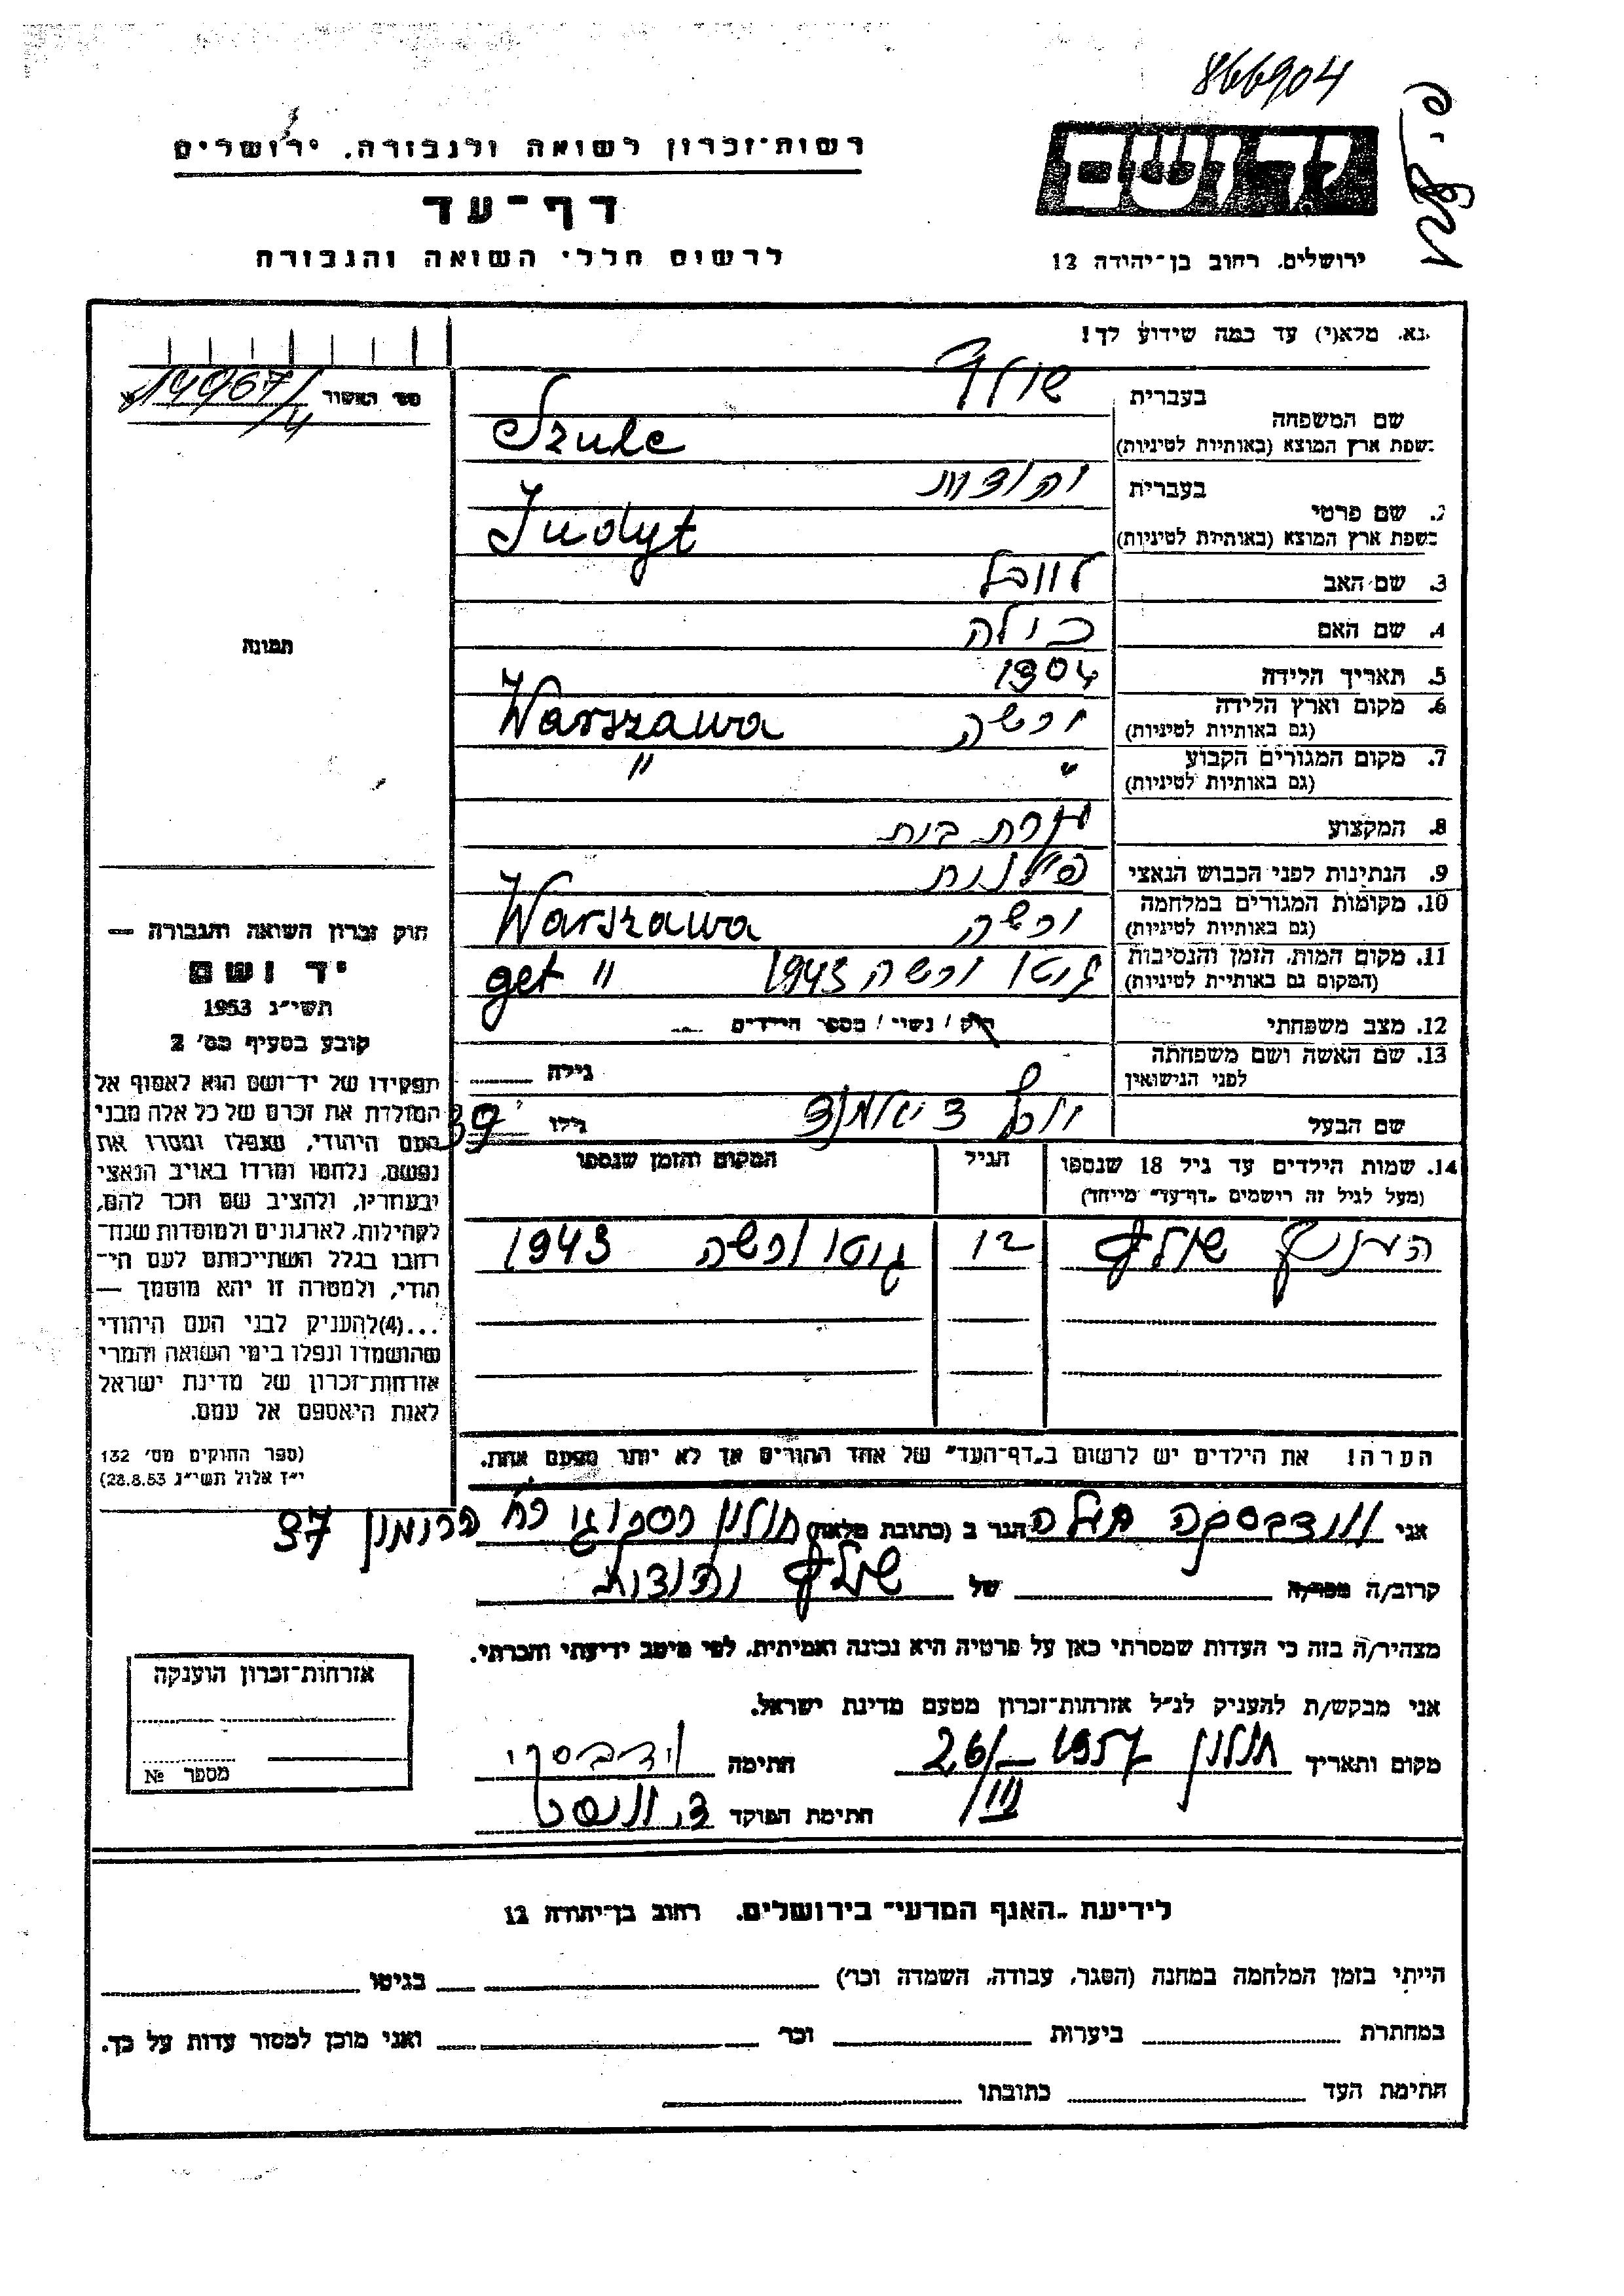 866904
רשות־זכרון לשואה ולגבורה, ירושלים
דף־עד
לרשום חללי השואה והגבורה
ירושלים, רחוב בן־יהודה 12
נא, מלא(י) עד כמה שידוע לך!
מס׳ האשור
שם המשפחה
בעברית
בשפת ארץ המוצא (באותיות לטיניות) Szulc
2. שם פרטי
בעברית יהודית
בשפת ארץ המוצא (באותיות לטיניות) Judyt
3. שם האב
4. שם האם
5. תאריך הלידה 1904
6. מקום וארץ הלידה (גם באותיות לטיניות) ורשה Warszawa
7. מקום המגורים הקבוע (גם באותיות לטיניות) " "
8. המקצוע עקרת בית
9. הנתינות לפני הכבוש הנאצי פולנית
10. מקומות המגורים במלחמה (גם באותיות לטיניות) ורשה Warszawa
11. מקום המות, הזמן והנסיבות (המקום גם באותיות לטיניות) גיטו ורשה 1943 get "
12. מצב משפחתי רוק / נשוי / מספר הילדים
13. שם האשה ושם משפחתה לפני הנישואין גילה
שם הבעל גילו 39
14. שמות הילדים עד גיל 18 שנספו (מעל לגיל זה רושמים "דף־עד" מיוחד)
הגיל
המקום והזמן שנספו
12 גיטו ורשה 1943
תמונה
חוק זכרון השואה והגבורה —
יד ושם
תשי״ג 1953
קובע בסעיף מס׳ 2
תפקידו של יד־ושם הוא לאסוף אל
המולדת את זכרם של כל אלה מבני
העם היהודי, שנפלו ומסרו את
נפשם, נלחמו ומרדו באויב הנאצי
ובעוזריו, ולהציב שם וזכר להם,
לקהילות, לארגונים ולמוסדות שנח־
רבו בגלל השתייכותם לעם הי־
הודי, ולמטרה זו יהא מוסמך —
...(4)להעניק לבני העם היהודי
שהושמדו ונפלו בימי השואה והמרי
אזרחות־זכרון של מדינת ישראל
לאות היאספם אל עמם.
(ספר החוקים מס׳ 132
י״ז אלול תשי״ג 28.8.53)
הערה! את הילדים יש לרשום ב„דף־העד״ של אחד ההורים אך לא יותר מפעם אחת.
אני הגר ב (כתובת מלאה) חולון 37
קרוב/ה מכר/ה של
מצהיר/ה בזה כי העדות שמסרתי כאן על פרטיה היא נכונה ואמיתית, לפי מיטב ידיעתי והכרתי.
אני מבקש/ת להעניק לנ״ל אזרחות־זכרון מטעם מדינת ישראל.
מקום ותאריך חולון 26/III 1957 חתימה
חתימת הפוקד
אזרחות־זכרון הוענקה
מספר №
לידיעת „האגף המדעי״ בירושלים, רחוב בן־יהודה 12
הייתי בזמן המלחמה במחנה (הסגר, עבודה, השמדה וכו׳) בגיטו
במחתרת ביערות וכו׳ ואני מוכן למסור עדות על כך.
חתימת העד כתובתו